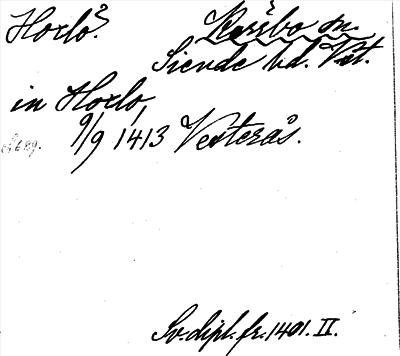 Horlo?
Kärrbo sn.
Siende hd. Vstm.
in Horlo,
9/9 1413 Vesterås.
Sv. dipl. fr. 1401. II.